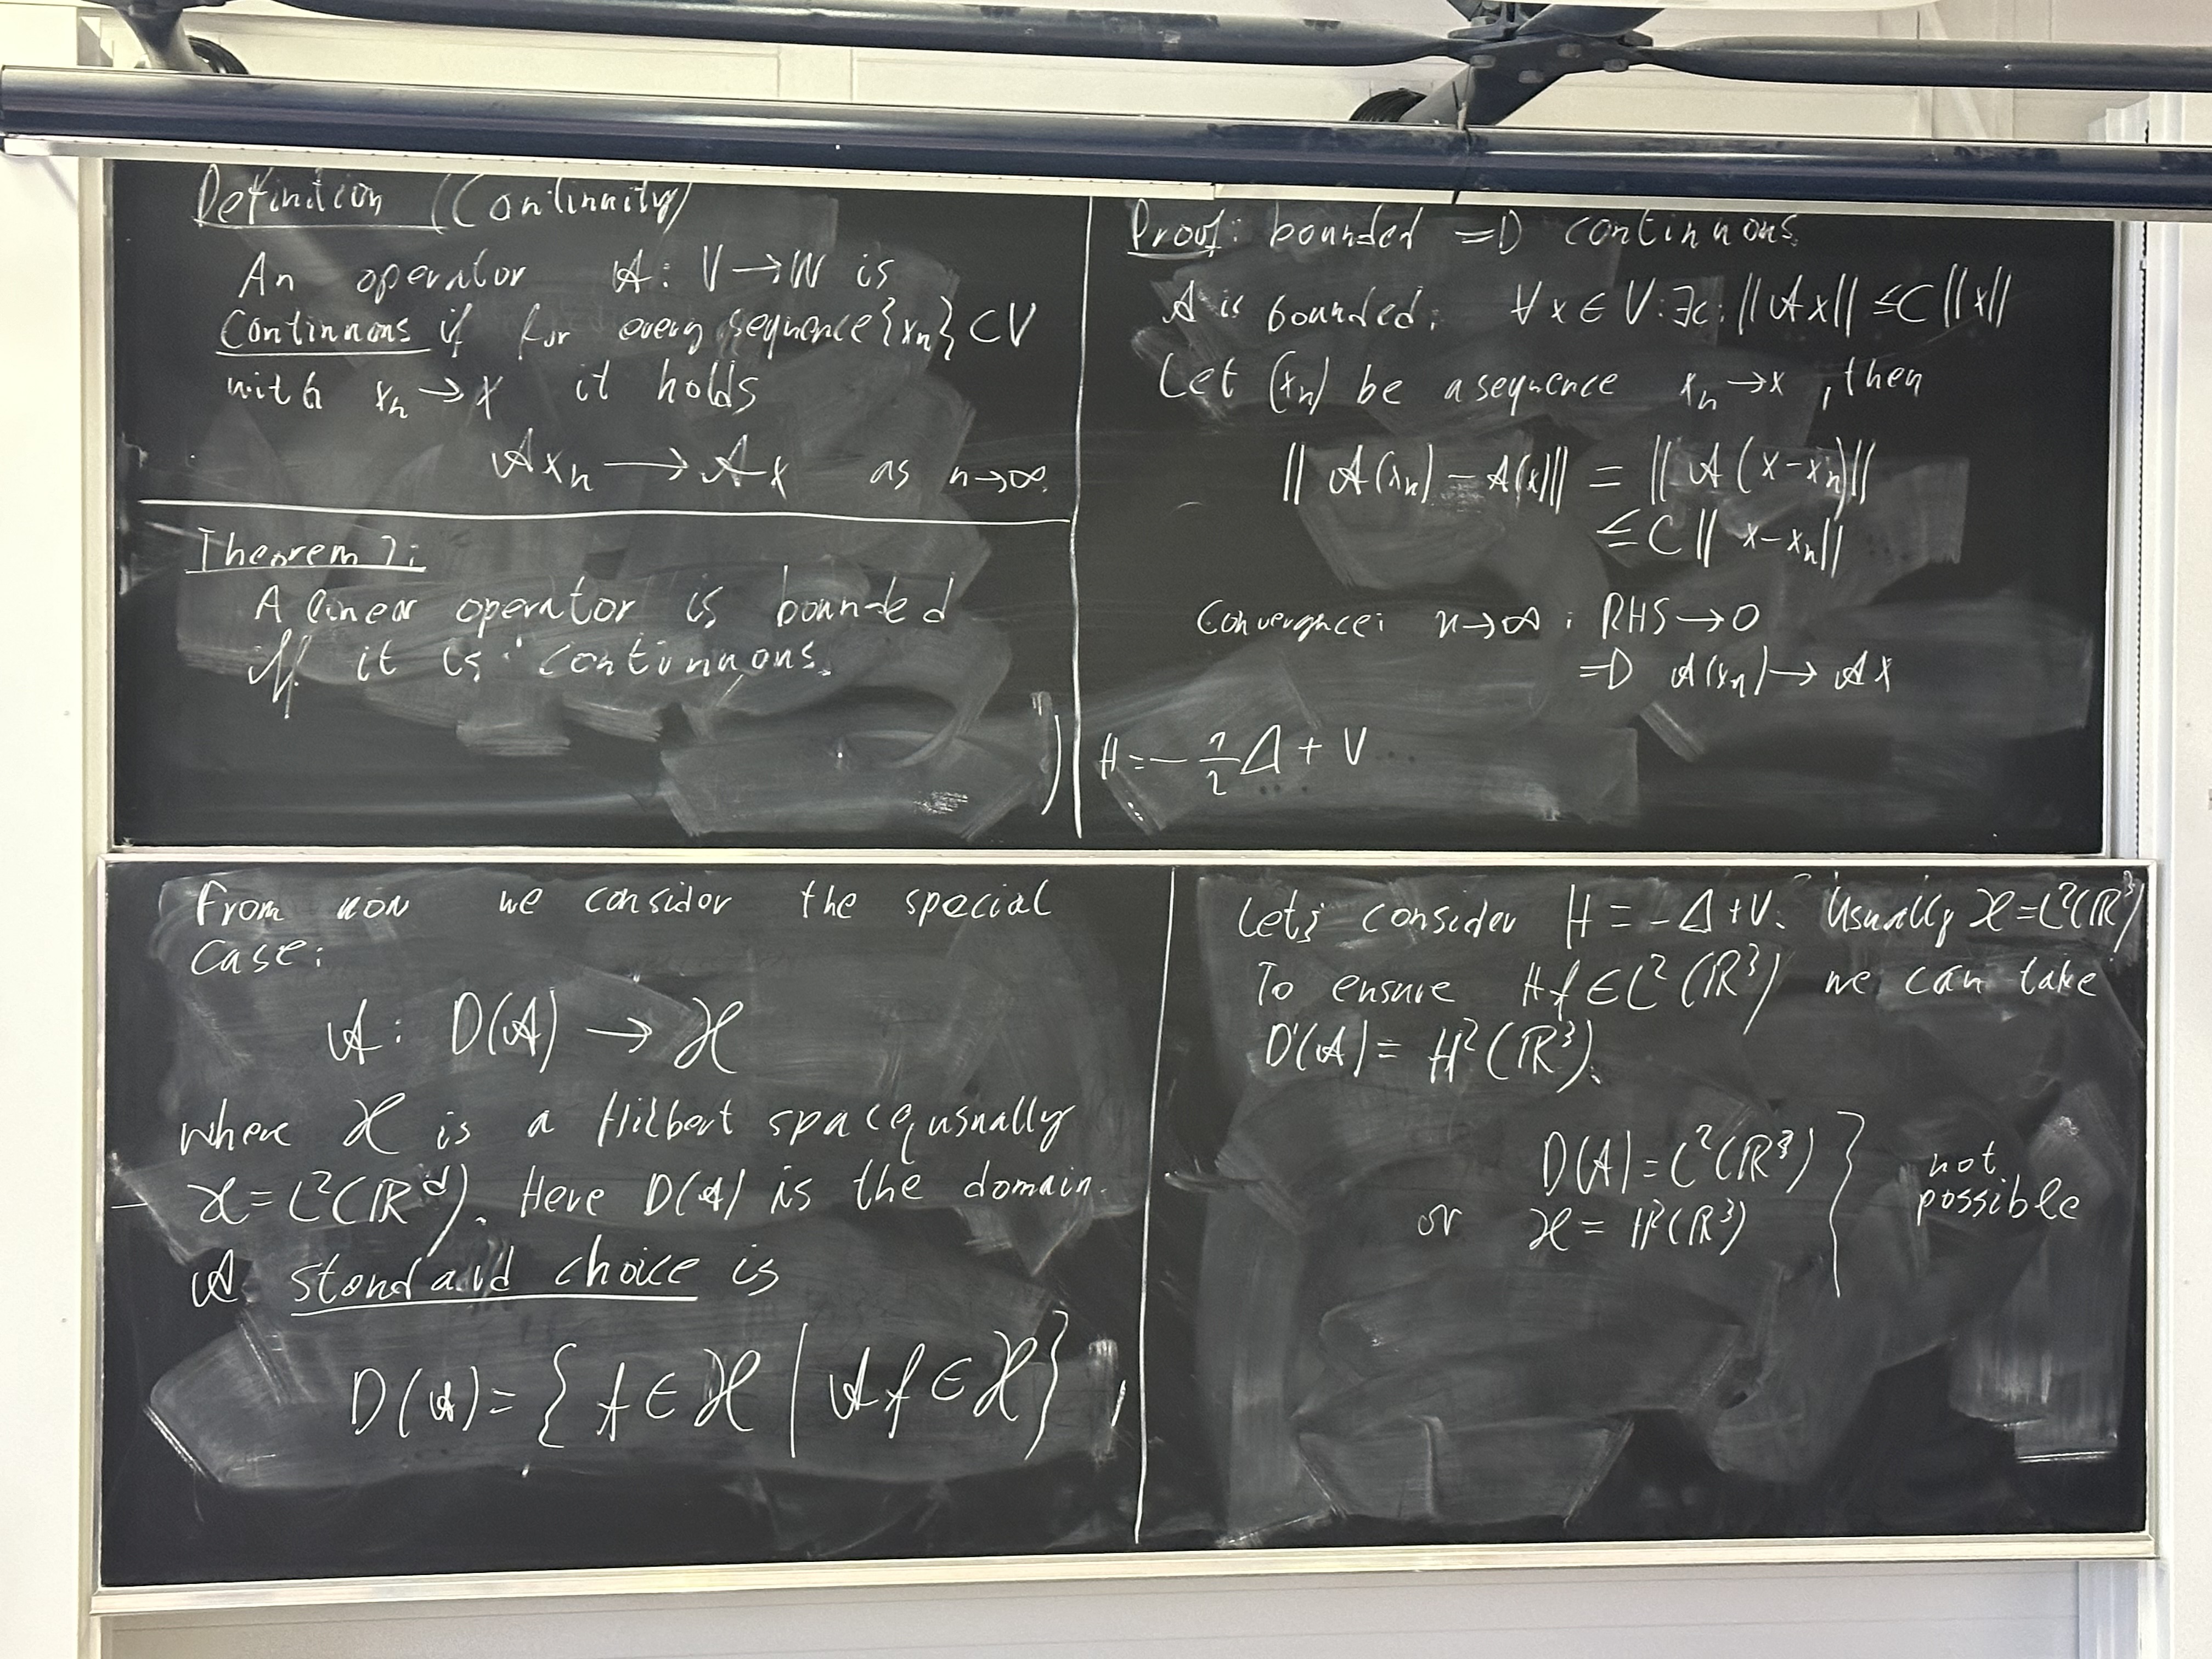 Definition (Continuity)
An operator 𝒜: V → W is
continuous if for every sequence {xₙ} ⊂ V
with xₙ → x it holds
𝒜xₙ → 𝒜x as n→∞.
Theorem 2:
A linear operator is bounded
iff it is continuous.
Proof: bounded ⇒ continuous.
𝒜 is bounded: ∀x ∈ V: ∃c: ||𝒜x|| ≤ C||x||
Let (xₙ) be a sequence xₙ → x, then
||𝒜(xₙ) − 𝒜(x)|| = ||𝒜(x−xₙ)||
≤ C||x−xₙ||
Convergence: n→∞: RHS → 0
⇒ 𝒜(xₙ) → 𝒜x
H = −½Δ + V
From now we consider the special
case:
𝒜: D(𝒜) → ℋ
where ℋ is a Hilbert space, usually
ℋ = L²(ℝᵈ). Here D(𝒜) is the domain.
A standard choice is
D(𝒜) = {f ∈ ℋ | 𝒜f ∈ ℋ},
Let's consider H = −Δ+V. Usually ℋ = L²(ℝ³)
To ensure Hf ∈ L²(ℝ³) we can take
D(𝒜) = H²(ℝ³).
D(𝒜) = L²(ℝ³) } not
or ℋ = H²(ℝ³) } possible